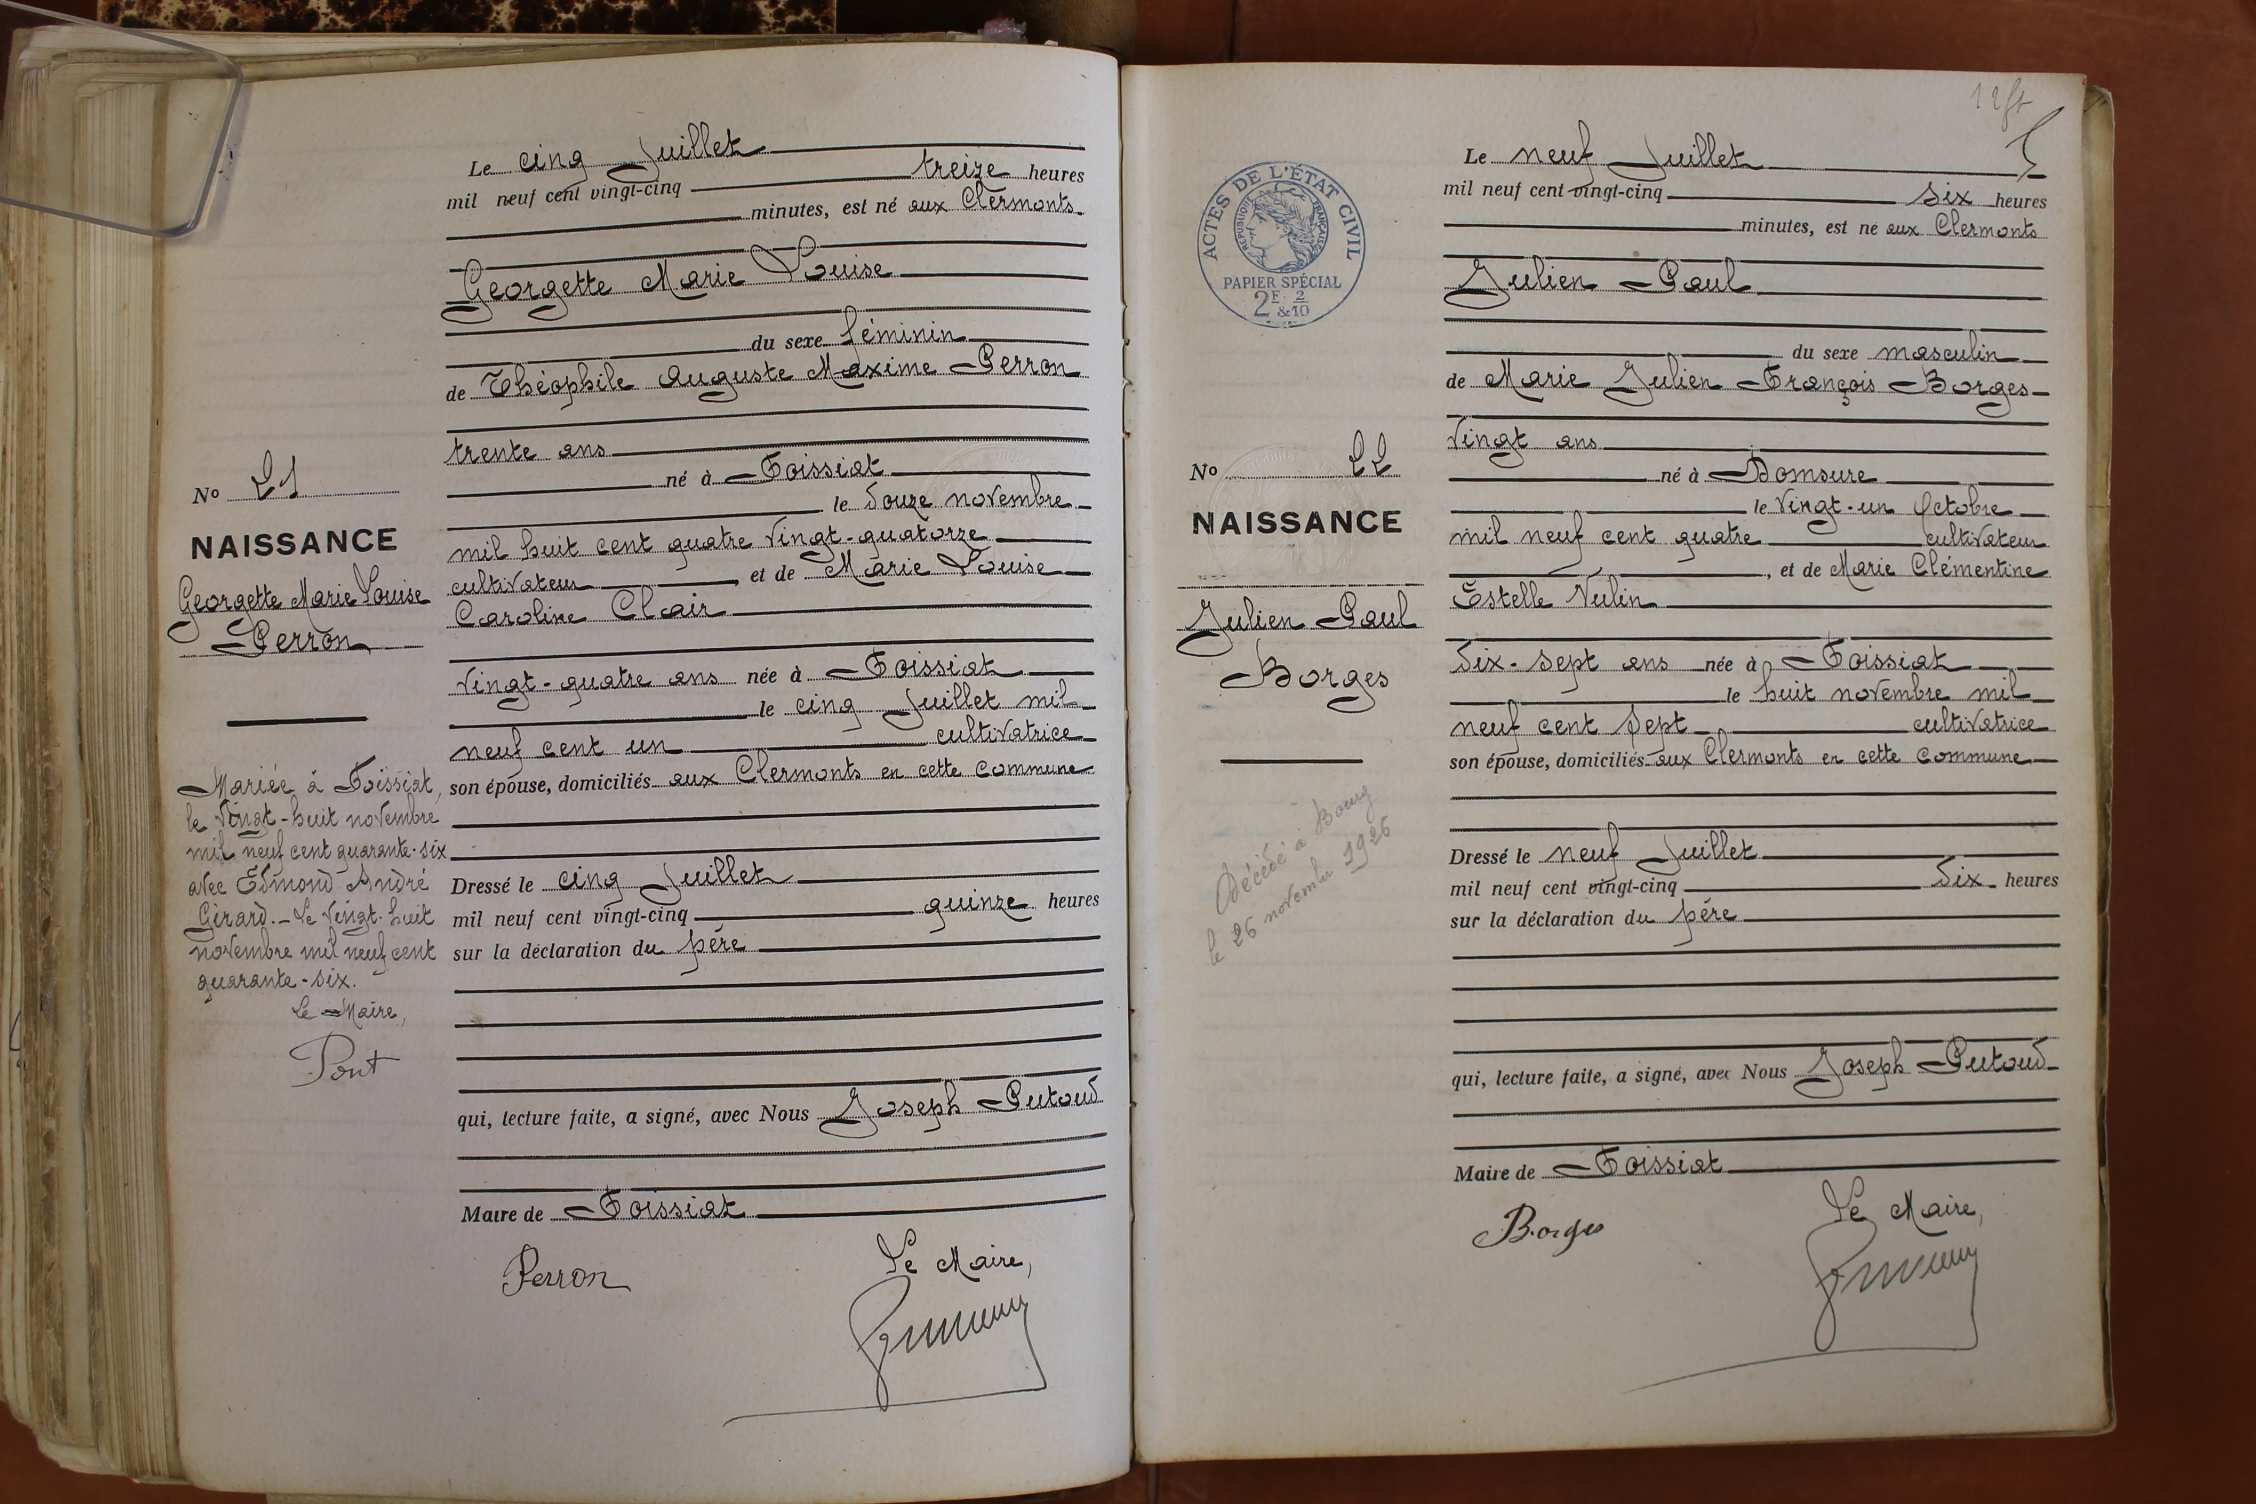 Le cinq Juillet
mil neuf cent vingt-cinq treize heures
minutes, est né aux Clermonts
Georgette Marie Louise
du sexe féminin
de Théophile Auguste Maxime Perron
trente ans
né à Foissiat
le douze novembre
mil huit cent quatre vingt-quatorze
cultivateur, et de Marie Louise
Caroline Clair
vingt-quatre ans née à Foissiat
le cinq Juillet mil
neuf cent un cultivatrice
son épouse, domiciliés aux Clermonts en cette commune
Dressé le cinq Juillet
mil neuf cent vingt-cinq quinze heures
sur la déclaration du père
qui, lecture faite, a signé, avec Nous Joseph Putoud
Maire de Foissiat
Perron
Le Maire,
No 21
NAISSANCE
Georgette Marie Louise
Perron
Mariée à Foissiat,
le vingt-huit novembre
mil neuf cent quarante-six
avec Edmond André
Girard. - Le vingt-huit
novembre mil neuf cent
quarante-six.
Le Maire,
Pont
ACTES DE L'ÉTAT CIVIL
RÉPUBLIQUE FRANÇAISE
PAPIER SPÉCIAL
2F 2
&10
No 22
NAISSANCE
Julien Paul
Borges
Décédé à Bourg
le 26 novembre 1926
Le neuf Juillet
mil neuf cent vingt-cinq six heures
minutes, est né aux Clermonts
Julien Paul
du sexe masculin
de Marie Julien François Borges
vingt ans
né à Domsure
le vingt-un Octobre
mil neuf cent quatre cultivateur
, et de Marie Clémentine
Estelle Vulin
dix-sept ans née à Foissiat
le huit novembre mil
neuf cent sept cultivatrice
son épouse, domiciliés aux Clermonts en cette commune
Dressé le neuf Juillet
mil neuf cent vingt-cinq dix heures
sur la déclaration du père
qui, lecture faite, a signé, avec Nous Joseph Putoud
Maire de Foissiat
Borges
Le Maire,